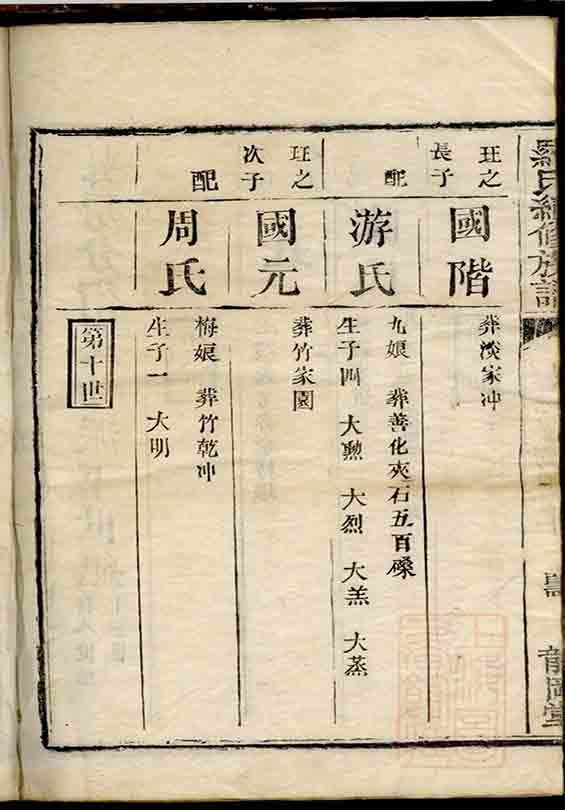 羅氏續修族譜
龍岡堂
玨之長子
國階
葬淡家冲
配
游氏
九娘 葬善化夾石五百磉
生子四 大勲 大烈 大羔 大蒸
玨之次子
國元
葬竹家園
配
周氏
梅娘 葬竹乾冲
生子一 大明
第十世